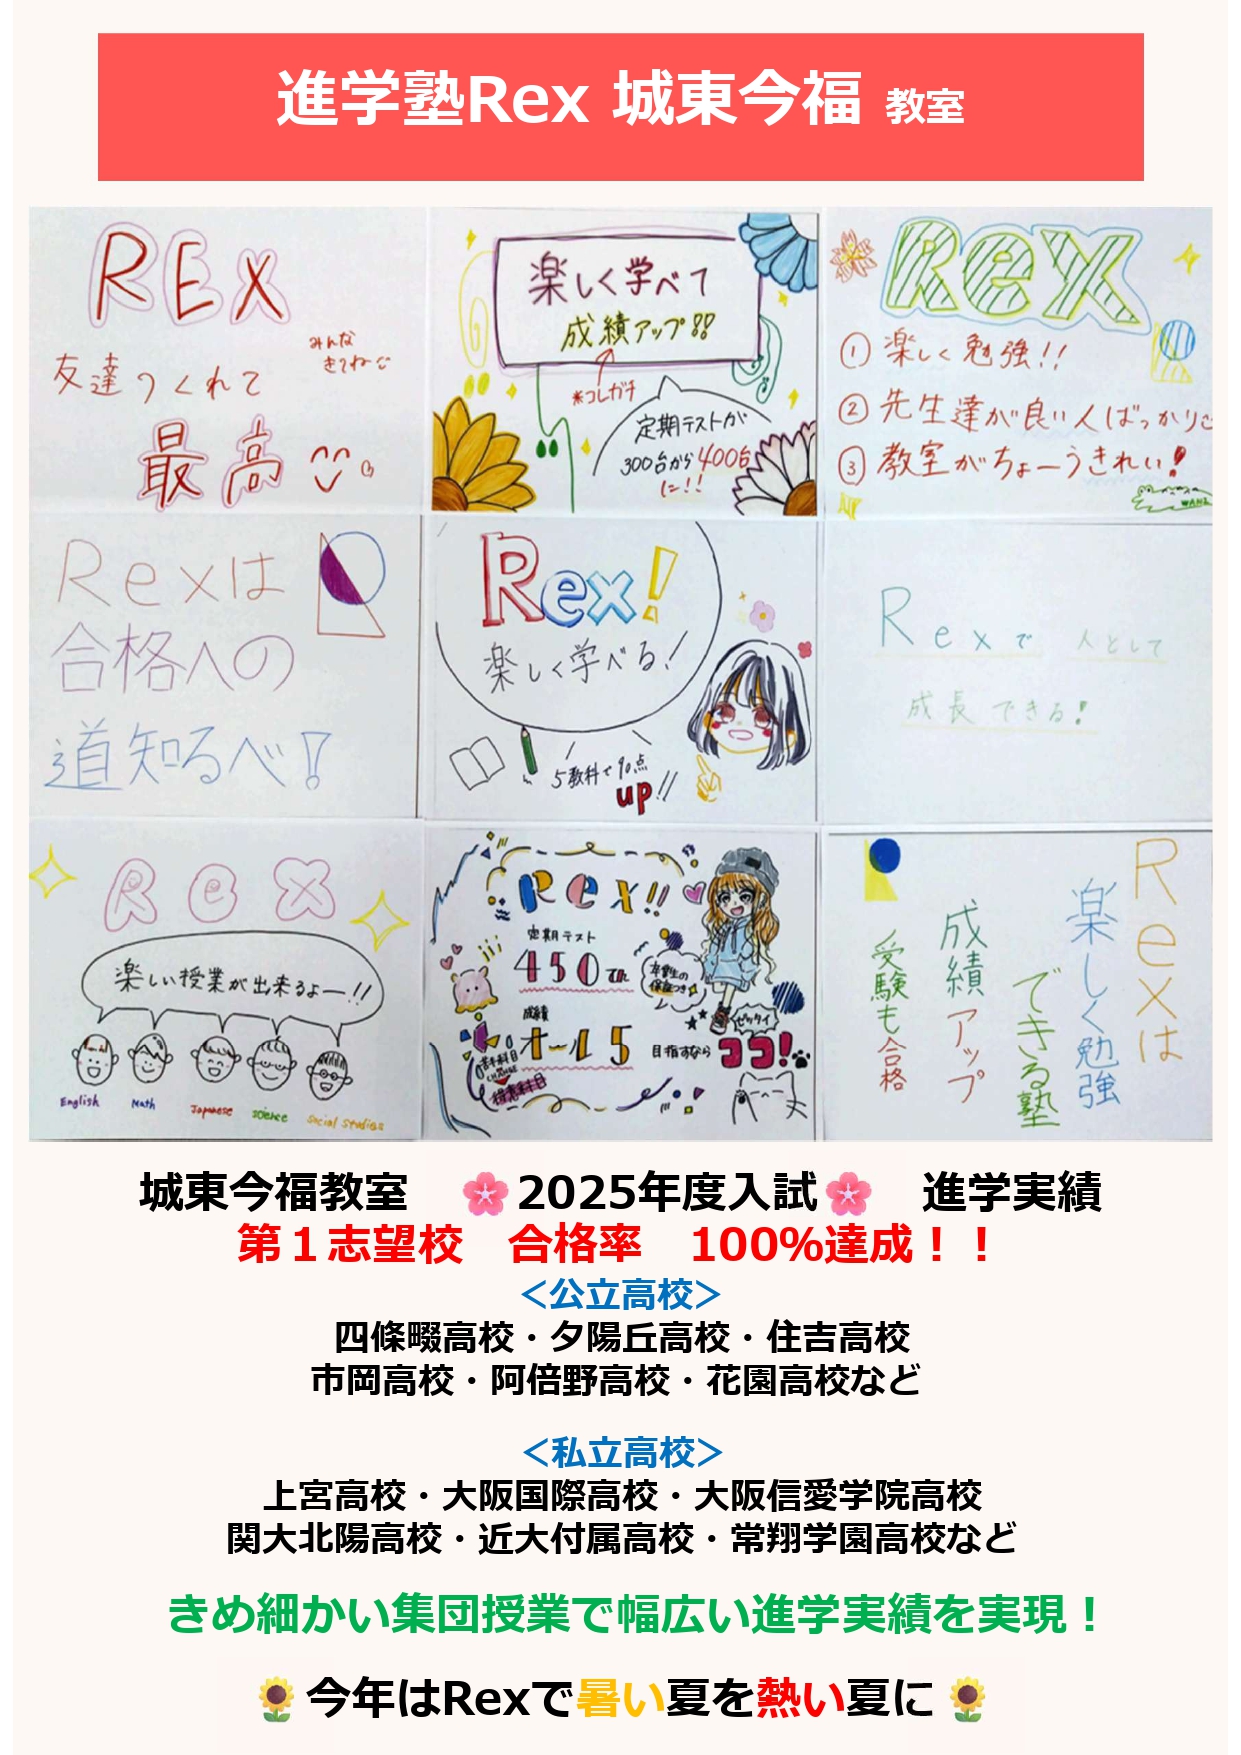 進学塾Rex 城東今福 教室
REX
みんな
きてね
友達つくれて
最高
楽しく学べて
成績アップ!!
*コレガチ
定期テストが
300台から400台
に!!
Rex
① 楽しく勉強!!
② 先生達が良い人ばっかり
③ 教室がちょーうきれい!
WANI
Rexは
合格への
道知るべ!
Rex!
楽しく学べる!
5教科で90点
up!!
Rexで 人として
成長できる!
Rex
楽しい授業が出来るよー!!
English Math Japanese science Social Studies
Rex!!
定期テスト
450
卒業生の
保証つき
成績
オール5
ゼッタイ
目指すなら ココ!
苦手科目
CHANGE
得意科目
Rexは
楽しく勉強
できる塾
成績アップ
受験も合格
城東今福教室 🌸2025年度入試🌸 進学実績
第１志望校 合格率 100%達成！！
＜公立高校＞
四條畷高校・夕陽丘高校・住吉高校
市岡高校・阿倍野高校・花園高校など
＜私立高校＞
上宮高校・大阪国際高校・大阪信愛学院高校
関大北陽高校・近大付属高校・常翔学園高校など
きめ細かい集団授業で幅広い進学実績を実現！
🌻今年はRexで暑い夏を熱い夏に🌻